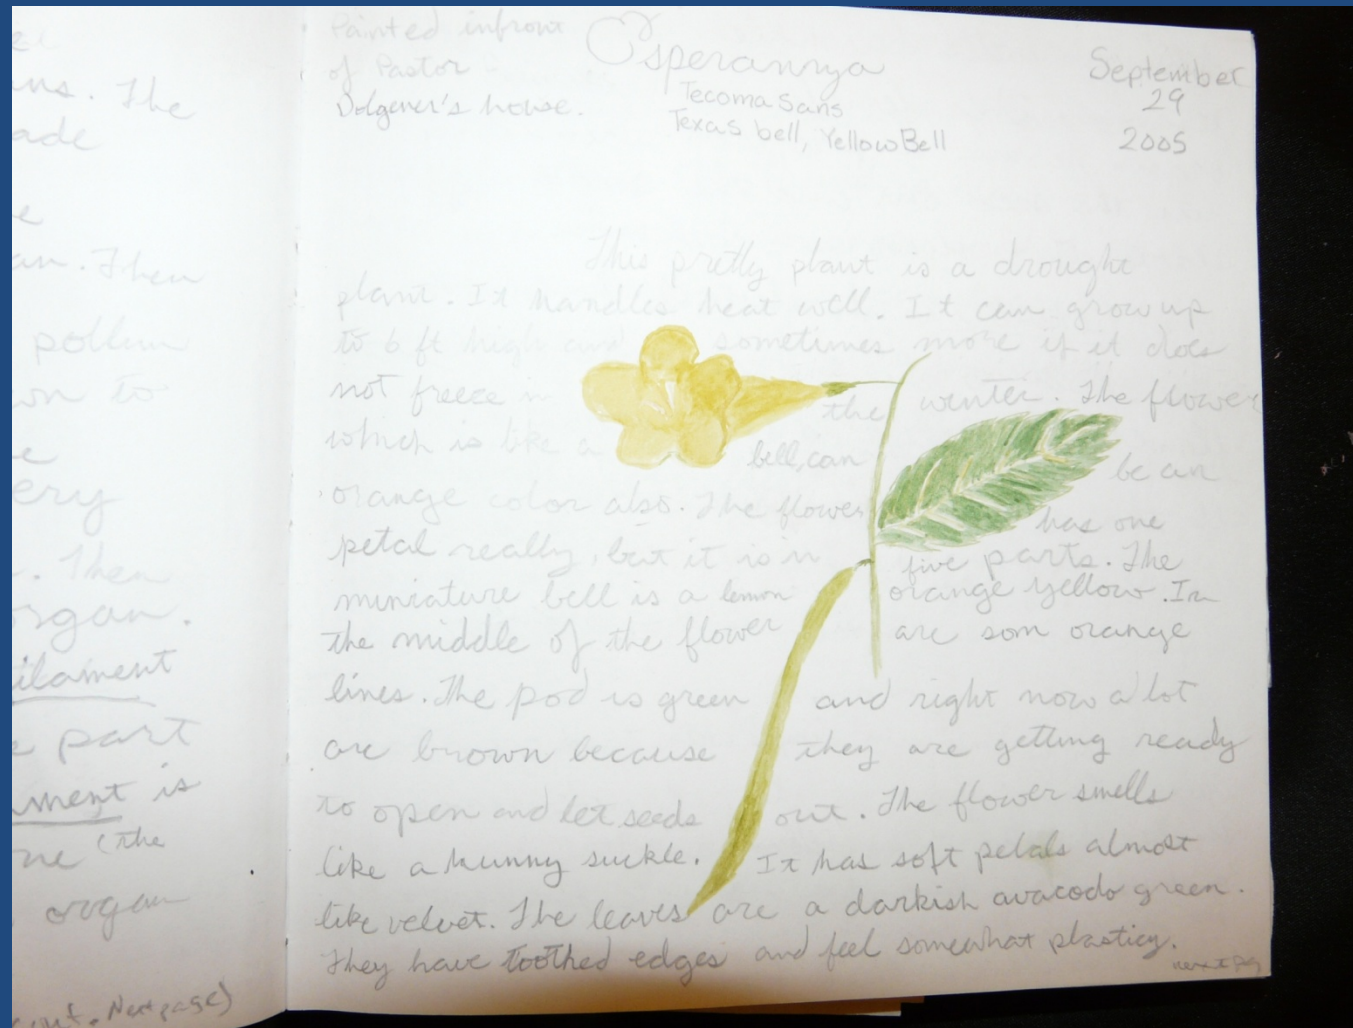 ns. The
ade
e
an. Then
pollin
on to
e
ery
. Then
organ.
ilament
e part
ament is
ne (the
organ
cont. Next page)
Painted infront
of Pastor
Dolgener's house.
Esperannza
Tecoma Sans
Texas bell, Yellow Bell
September
29
2005
This pretty plant is a drought
plant. It handles heat well. It can grow up
to 6 ft high and sometimes more if it does
not freeze in the winter. The flower
which is like a bell, can be an
orange color also. The flower has one
petal really, but it is in five parts. The
miniature bell is a lemon orange yellow. In
the middle of the flower are som orange
lines. The pod is green and right now a lot
are brown because they are getting ready
to open and let seeds out. The flower smells
like a hunny suckle. It has soft petals almost
like velvet. The leaves are a darkish avacodo green.
They have toothed edges and feel somewhat plasticy.
next pg